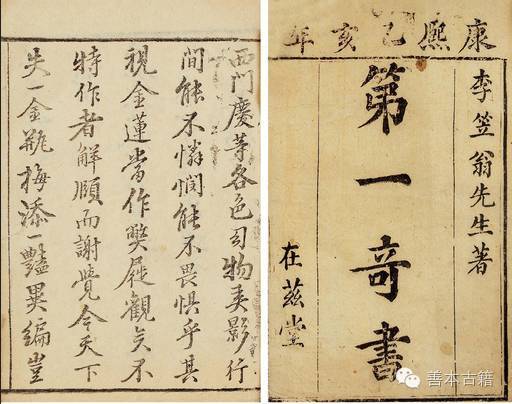 康熙乙亥年
李笠翁先生著
第一奇書
在茲堂
西門慶等各色幻物弄影行
間能不憐憫能不畏懼乎其
視金蓮當作弊屣觀矣不
特作者解頤而謝覺今天下
失一金瓶梅添一豔異編豈
善本古籍